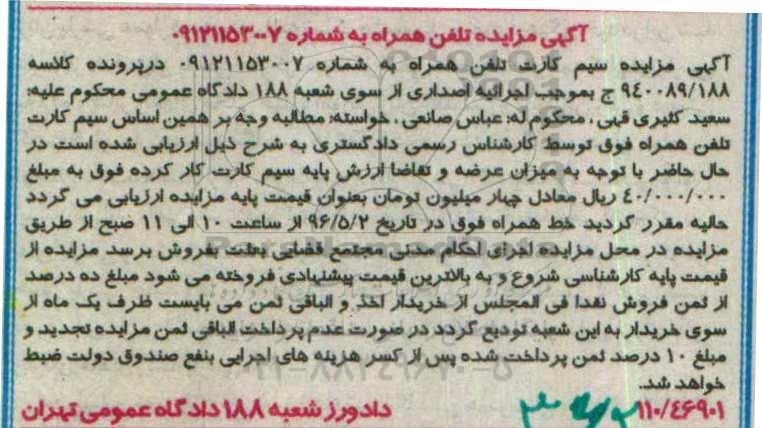 آگهی مزایده تلفن همراه به شماره ۰۹۱۲۱۱۵۳۰۰۷
آگهی مزایده سیم کارت تلفن همراه به شماره ۰۹۱۲۱۱۵۳۰۰۷ درپرونده کلاسه
۹۴۰۰۸۹/۱۸۸ ج بموجب اجرائیه اصداری از سوی شعبه ۱۸۸ دادگاه عمومی محکوم علیه:
سعید کثیری قهی ، محکوم له: عباس صانعی ، خواسته: مطالبه وجه بر همین اساس سیم کارت
تلفن همراه فوق توسط کارشناس رسمی دادگستری به شرح ذیل ارزیابی شده است در
حال حاضر با توجه به میزان عرضه و تقاضا ارزش پایه سیم کارت کار کرده فوق به مبلغ
۴۰/۰۰۰/۰۰۰ ریال معادل چهار میلیون تومان بعنوان قیمت پایه مزایده ارزیابی می گردد
حالیه مقرر گردید خط همراه فوق در تاریخ ۹۶/۵/۲ از ساعت ۱۰ الی ۱۱ صبح از طریق
مزایده در محل مزایده اجرای احکام مدنی مجتمع قضایی بعثت بفروش برسد مزایده از
قیمت پایه کارشناسی شروع و به بالاترین قیمت پیشنهادی فروخته می شود مبلغ ده درصد
از ثمن فروش نقدا فی المجلس از خریدار اخذ و الباقی ثمن می بایست ظرف یک ماه از
سوی خریدار به این شعبه تودیع گردد در صورت عدم پرداخت الباقی ثمن مزایده تجدید و
مبلغ ۱۰ درصد ثمن پرداخت شده پس از کسر هزینه های اجرایی بنفع صندوق دولت ضبط
خواهد شد.
۱۱۰/۴۶۹۰۱ دادورز شعبه ۱۸۸ دادگاه عمومی تهران